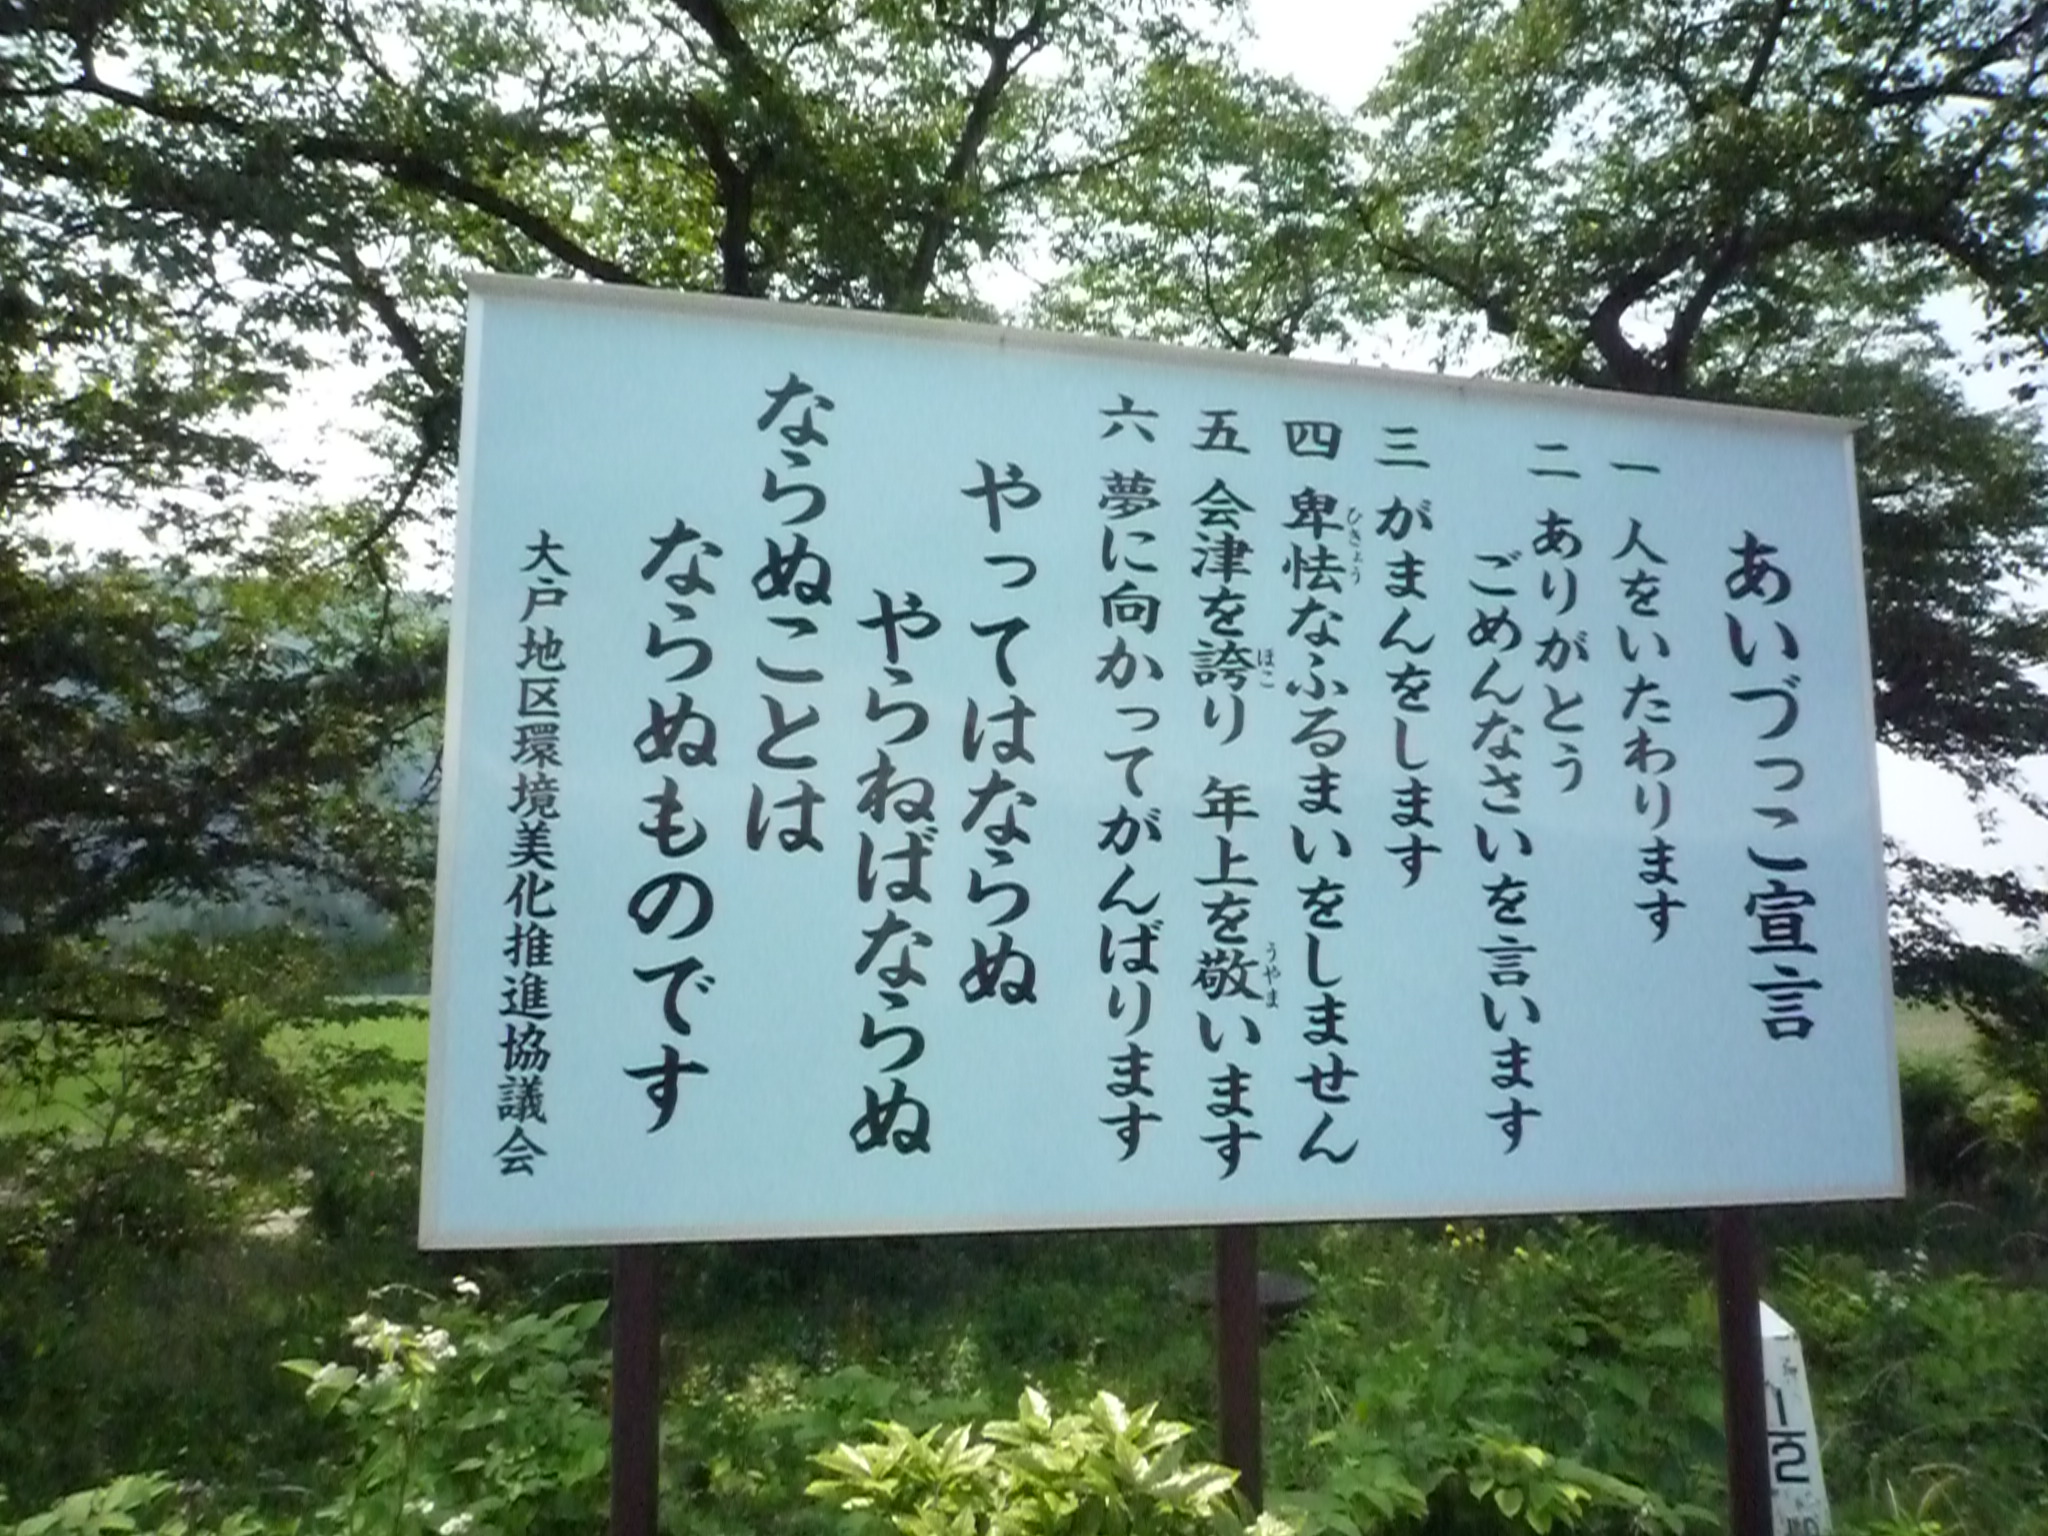 あいづっこ宣言
一 人をいたわります
二 ありがとう
ごめんなさいを言います
三 がまんをします
四 卑怯なふるまいをしません
ひきょう
五 会津を誇り 年上を敬います
ほこ
うやま
六 夢に向かってがんばります
やってはならぬ
やらねばならぬ
ならぬことは
ならぬものです
大戸地区環境美化推進協議会
1
2